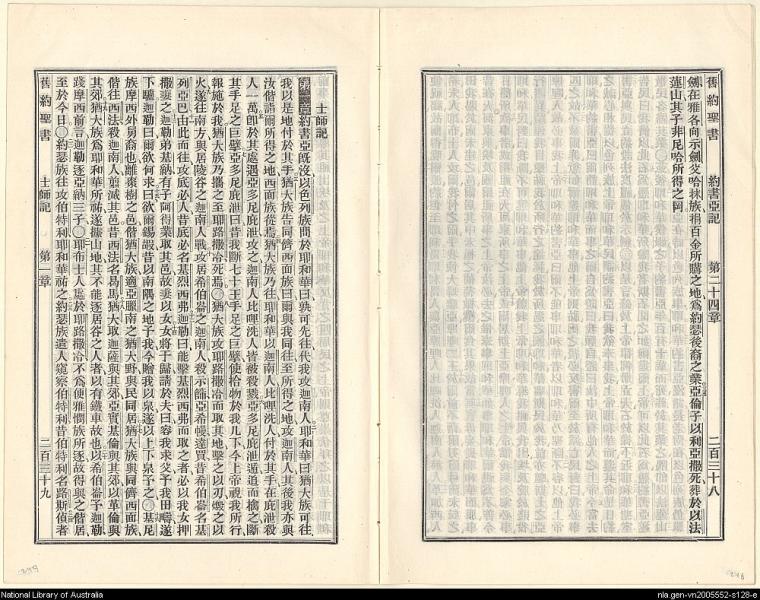 舊約聖書 約書亞記 第二十四章 二百三十八
劍在雅各向示劍父哈抹族捐百金所購之地爲約瑟後裔之業亞倫子以利亞撒死葬於以法
蓮山其子非尼哈所得之阿
士師記
約書亞旣沒以色列族問於耶和華曰孰可先往代我攻迦南人耶和華曰猶大族可往
我以是地付於其手猶大族告同儕西面族曰爾與我同往至所得之地攻迦南人其後我亦與
汝偕詣爾所得之地西面族從焉猶大族乃往耶和華以迦南人比哩洗人付於其手在庇泄殺
人一萬卽於其處遇亞多尼庇泄攻之迦南人比哩洗人皆被殺戮亞多尼庇泄遁追而擒之斷
其手足之巨擘亞多尼庇泄曰昔我斷七十王手足之巨擘使拾物於我几下今上帝視我所行
報施於我猶大族乃攜之至耶路撒冷死焉○猶大族攻耶路撒冷而取其地擊之以刃燬之以
火遂往南方與居陵谷之迦南人戰攻居希伯崙之迦南人殺示篩亞希幔達買昔希伯崙名基
列亞巴由此而往攻底必人昔底必名基烈西弗迦勒曰能擊基烈西弗而取之者必以我女押
撒妻之迦勒弟基納有子阿得業取其邑故妻以女女將于歸請於夫曰容我求父予我田疇遂
下驢迦勒曰爾欲何求曰求爾錫嘏昔以南隅之地予我今贈我以泉遂以上下泉予之○基尼
族摩西外舅裔也離棗樹之邑偕猶大族適亞臘南之猶大野與民同居猶大族與同儕西面族
偕往西法殺迦南人翦滅其邑昔西法名曷馬猶大取迦薩與其郊亞實基倫與其郊以革倫與
其郊猶大族爲耶和華所祐遂據山地其不能逐居谷之人者以有鐵車故也以希伯崙予迦勒
踐摩西前言迦勒逐亞納三子○耶布士人處於耶路撒冷不爲便雅憫族所逐故得與之偕居
至於今日○約瑟族往攻伯特利耶和華祐之約瑟族遣人窺察伯特利昔伯特利名路斯偵者
舊約聖書 士師記 第一章 二百三十九
National Library of Australia
nla.gen-vn2005552-s128-e